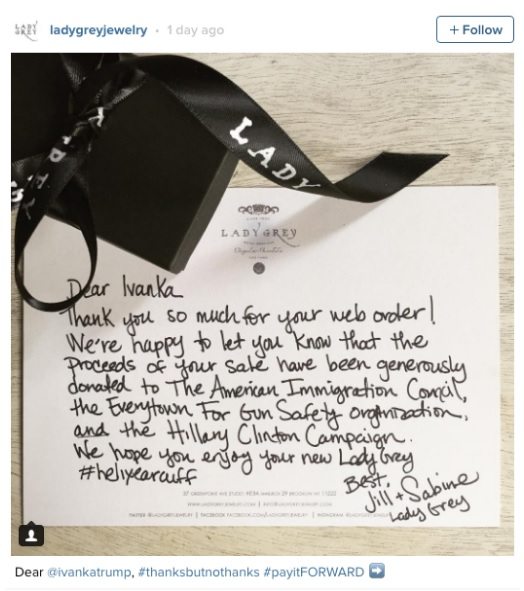 LADY GREY
ladygreyjewelry • 1 day ago
+ Follow
LADY
LADY GREY
Dear Ivanka
Thank you so much for your web order!
We're happy to let you know that the
Proceeds of your sale have been generously
donated to The American Immigration Council,
the Everytown For Gun Safety organization,
and the Hillary Clinton Campaign.
We hope you enjoy your new Lady Grey
#helixearcuff
Best,
Jill + Sabine
Lady Grey
Dear @ivankatrump, #thanksbutnothanks #payitFORWARD ➡